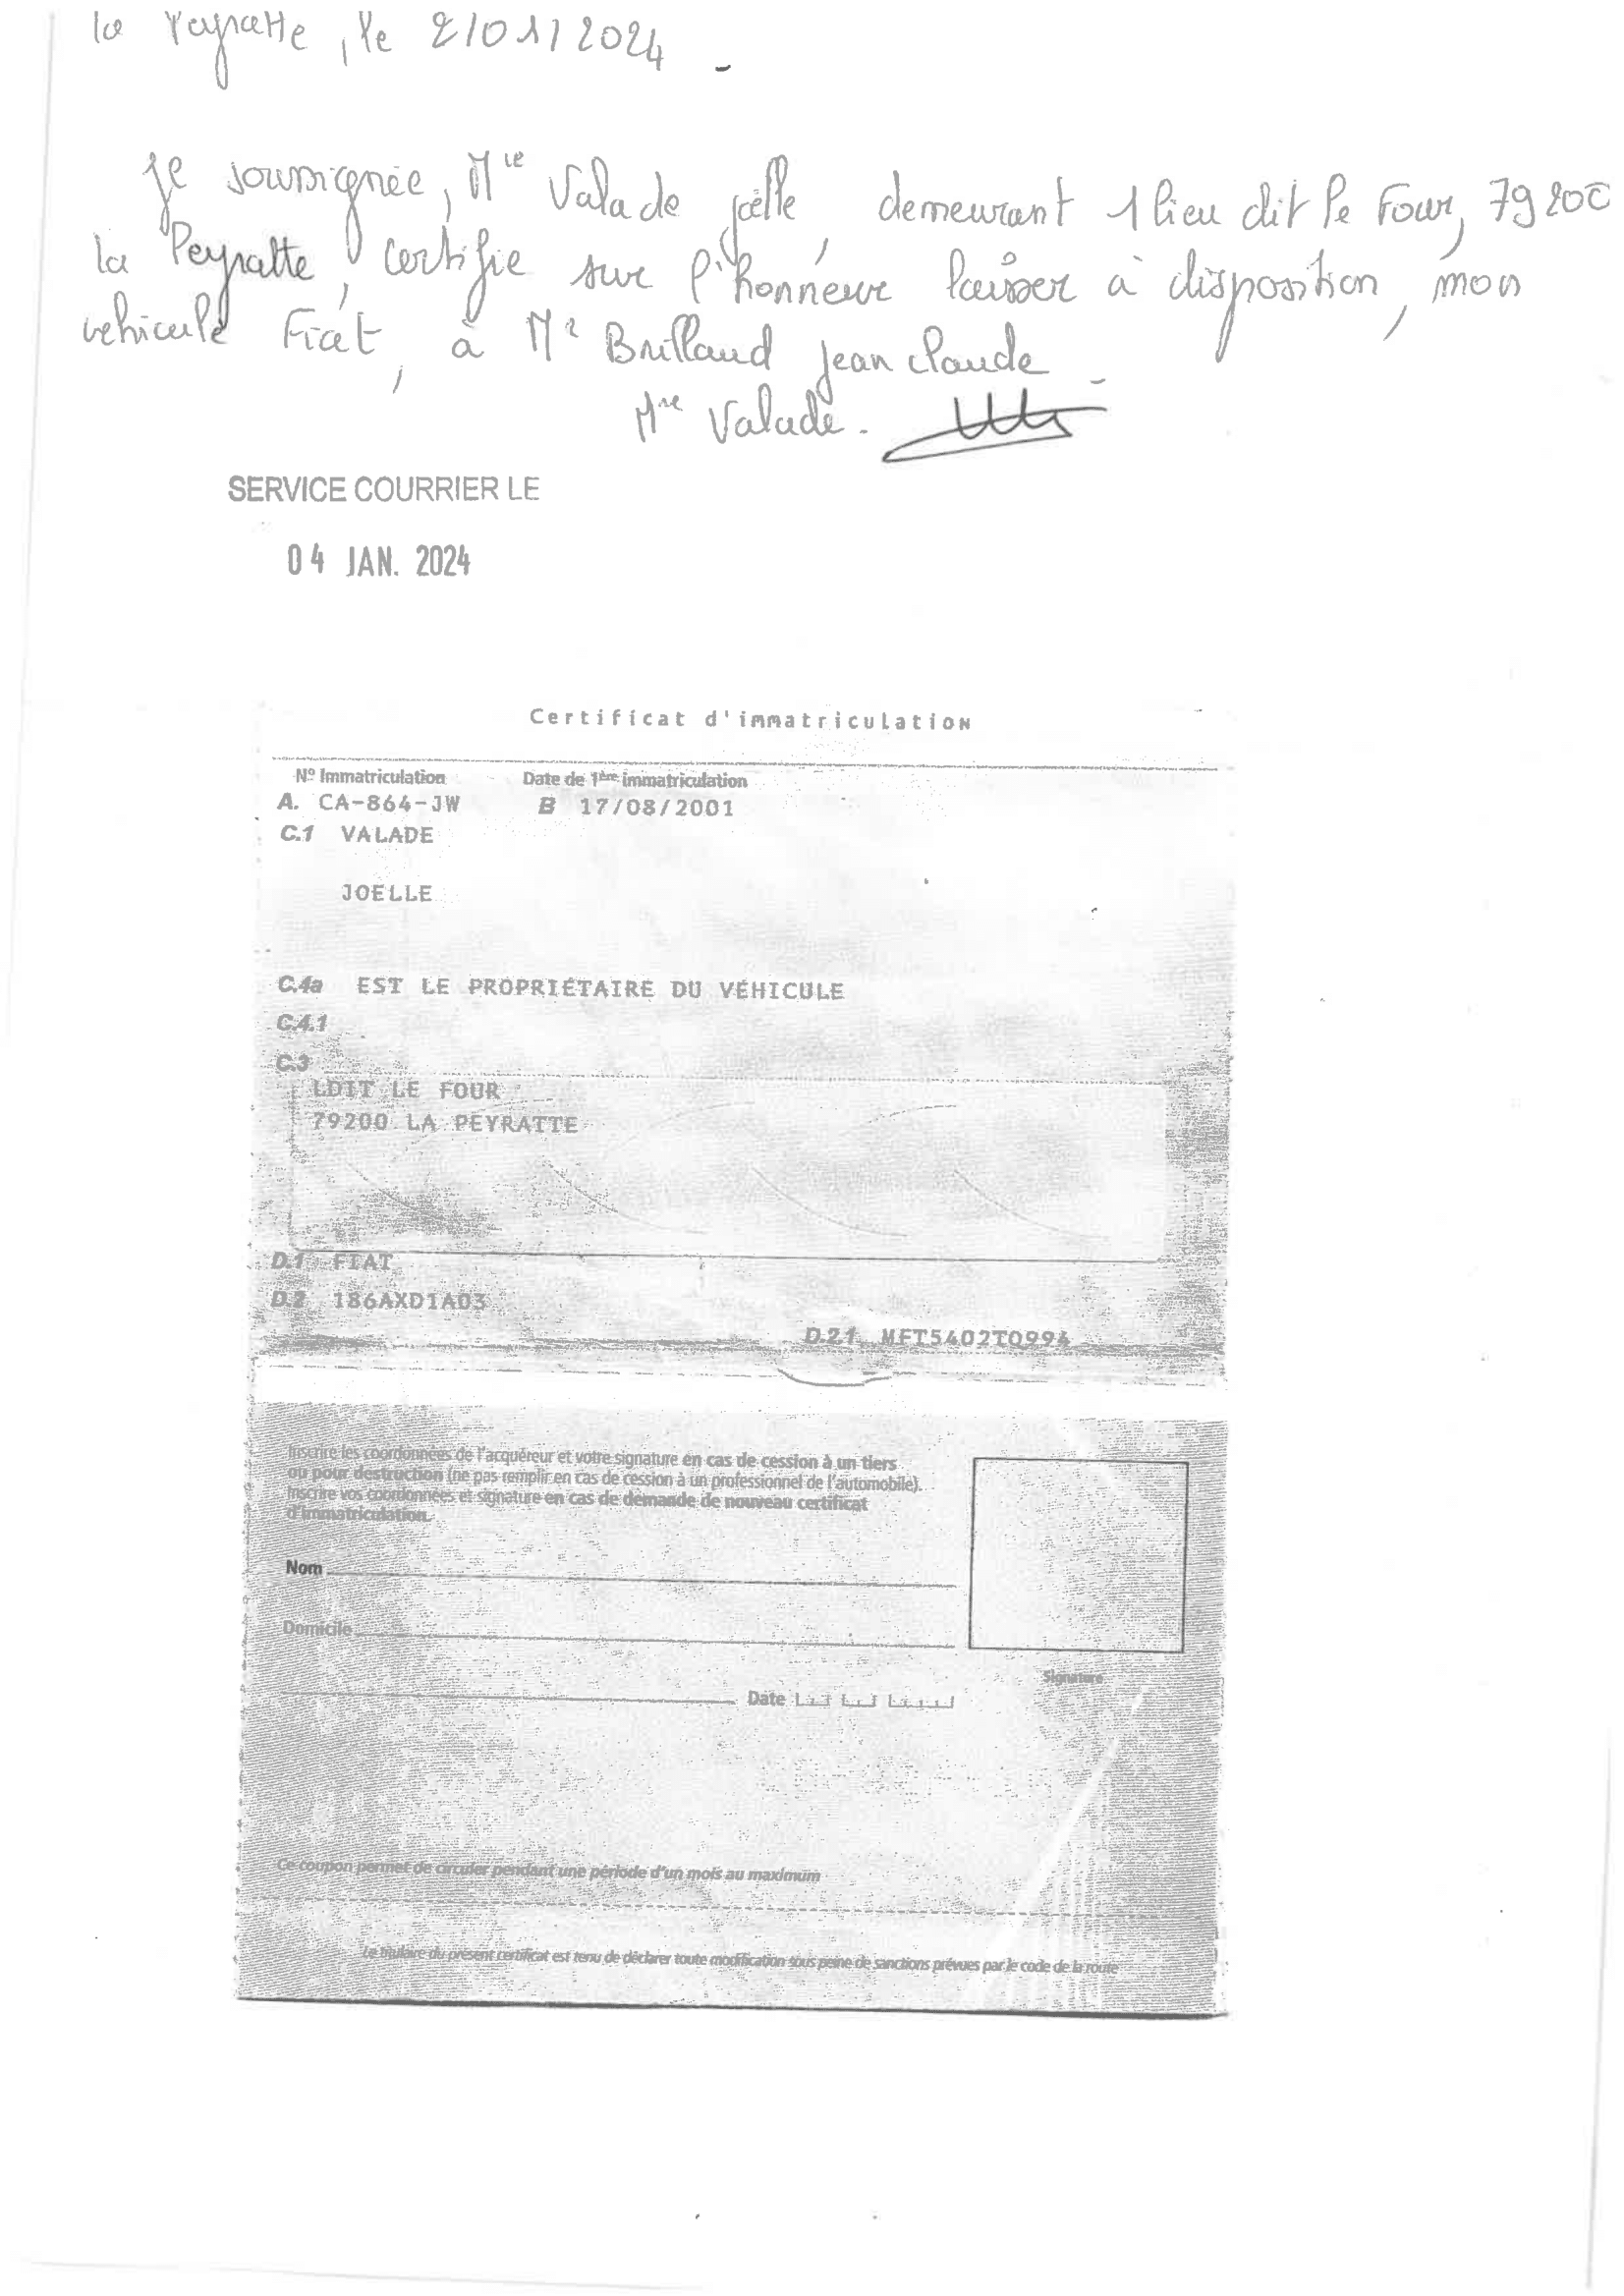 la Peyratte, le 2/01/2024.
Je soussignée, Mle Valade joëlle, demeurant 1 lieu dit le Four, 79200
la Peyratte, certifie sur l'honneur laisser à disposition, mon
vehicule Fiat, à Mr Brillaud jean claude.
Mme Valade.
SERVICE COURRIER LE
04 JAN. 2024
Certificat d'immatriculation
N° Immatriculation Date de 1ère immatriculation
A. CA-864-JW B 17/08/2001
C.1 VALADE
JOELLE
C.4a EST LE PROPRIÉTAIRE DU VÉHICULE
C.4.1
C.3
LDIT LE FOUR
79200 LA PEYRATTE
D.1 FIAT
D.2 186AXD1A03
D.2.1 MFT5402T0994
Inscrire les coordonnées de l'acquéreur et votre signature en cas de cession à un tiers
ou pour destruction (ne pas remplir en cas de cession à un professionnel de l'automobile).
Inscrire vos coordonnées et signature en cas de demande de nouveau certificat
d'immatriculation.
Nom
Domicile
Signature
Date
Ce coupon permet de circuler pendant une période d'un mois au maximum
Le titulaire du présent certificat est tenu de déclarer toute modification sous peine de sanctions prévues par le code de la route